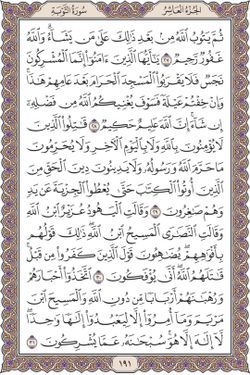 الجزء العاشر
سورة التوبة
ثُمَّ يَتُوبُ اللَّهُ مِنْ بَعْدِ ذَلِكَ عَلَى مَنْ يَشَاءُ وَاللَّهُ
غَفُورٌ رَحِيمٌ ٢٧ يَا أَيُّهَا الَّذِينَ آمَنُوا إِنَّمَا الْمُشْرِكُونَ
نَجَسٌ فَلَا يَقْرَبُوا الْمَسْجِدَ الْحَرَامَ بَعْدَ عَامِهِمْ هَذَا
وَإِنْ خِفْتُمْ عَيْلَةً فَسَوْفَ يُغْنِيكُمُ اللَّهُ مِنْ فَضْلِهِ
إِنْ شَاءَ إِنَّ اللَّهَ عَلِيمٌ حَكِيمٌ ٢٨ قَاتِلُوا الَّذِينَ
لَا يُؤْمِنُونَ بِاللَّهِ وَلَا بِالْيَوْمِ الْآخِرِ وَلَا يُحَرِّمُونَ
مَا حَرَّمَ اللَّهُ وَرَسُولُهُ وَلَا يَدِينُونَ دِينَ الْحَقِّ مِنَ
الَّذِينَ أُوتُوا الْكِتَابَ حَتَّى يُعْطُوا الْجِزْيَةَ عَنْ يَدٍ
وَهُمْ صَاغِرُونَ ٢٩ وَقَالَتِ الْيَهُودُ عُزَيْرٌ ابْنُ اللَّهِ
وَقَالَتِ النَّصَارَى الْمَسِيحُ ابْنُ اللَّهِ ذَلِكَ قَوْلُهُمْ
بِأَفْوَاهِهِمْ يُضَاهِئُونَ قَوْلَ الَّذِينَ كَفَرُوا مِنْ قَبْلُ
قَاتَلَهُمُ اللَّهُ أَنَّى يُؤْفَكُونَ ٣٠ اتَّخَذُوا أَحْبَارَهُمْ
وَرُهْبَانَهُمْ أَرْبَابًا مِنْ دُونِ اللَّهِ وَالْمَسِيحَ ابْنَ
مَرْيَمَ وَمَا أُمِرُوا إِلَّا لِيَعْبُدُوا إِلَهًا وَاحِدًا
لَا إِلَهَ إِلَّا هُوَ سُبْحَانَهُ عَمَّا يُشْرِكُونَ ٣١
١٩١